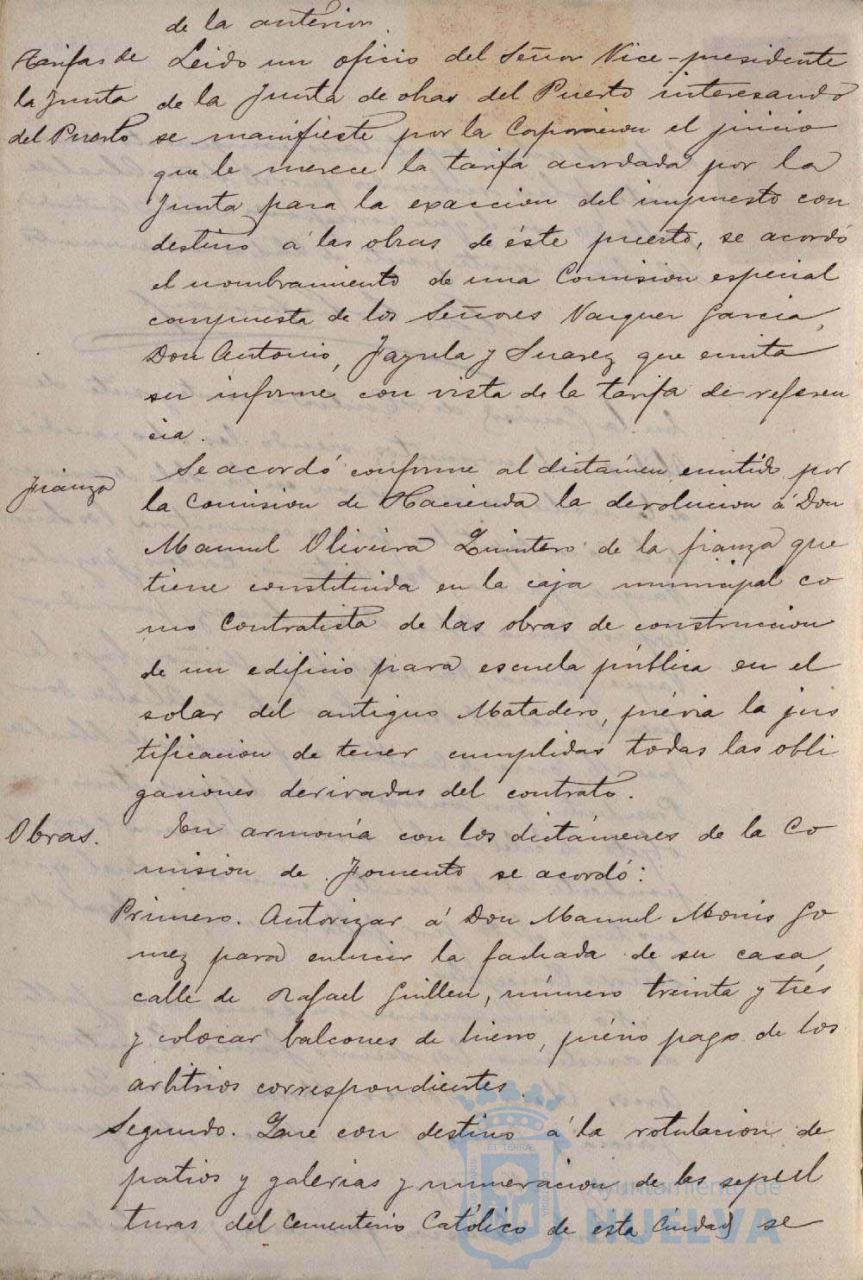 de la anterior.
Tarifas de
la Junta
del Puerto
Leido un oficio del Señor Vice-presidente
de la Junta de obras del Puerto interesando
se manifieste por la Corporacion el juicio
que le merece la tarifa acordada por la
Junta para la exaccion del impuesto con
destino á las obras de éste puerto, se acordó
el nombramiento de una Comision especial
compuesta de los Señores Vazquez Garcia,
Don Antonio, y Suarez que emita
su informe con vista de la tarifa de referen
cia.
Fianza
Se acordó conforme al dictámen emitido por
la Comision de Hacienda la devolucion á Don
Manuel Oliveira Quintero de la fianza que
tiene constituida en la caja municipal co
mo Contratista de las obras de construccion
de un edificio para escuela pública en el
solar del antiguo Matadero, prévia la jus
tificacion de tener cumplidas todas las obli
gaciones derivadas del contrato.
Obras.
En armonía con los dictámenes de la Co
mision de Fomento se acordó:
Primero. Autorizar á Don Manuel Monis Go
mez para enlucir la fachada de su casa,
calle de Rafael Guillen, número treinta y trés
y colocar balcones de hierro, prévio pago de los
arbitrios correspondientes.
Segundo. Que con destino á la rotulacion de
patios y galerias y numeracion de las sepul
turas del Cementerio Católico de esta Ciudad se
Ayuntamiento de
HUELVA